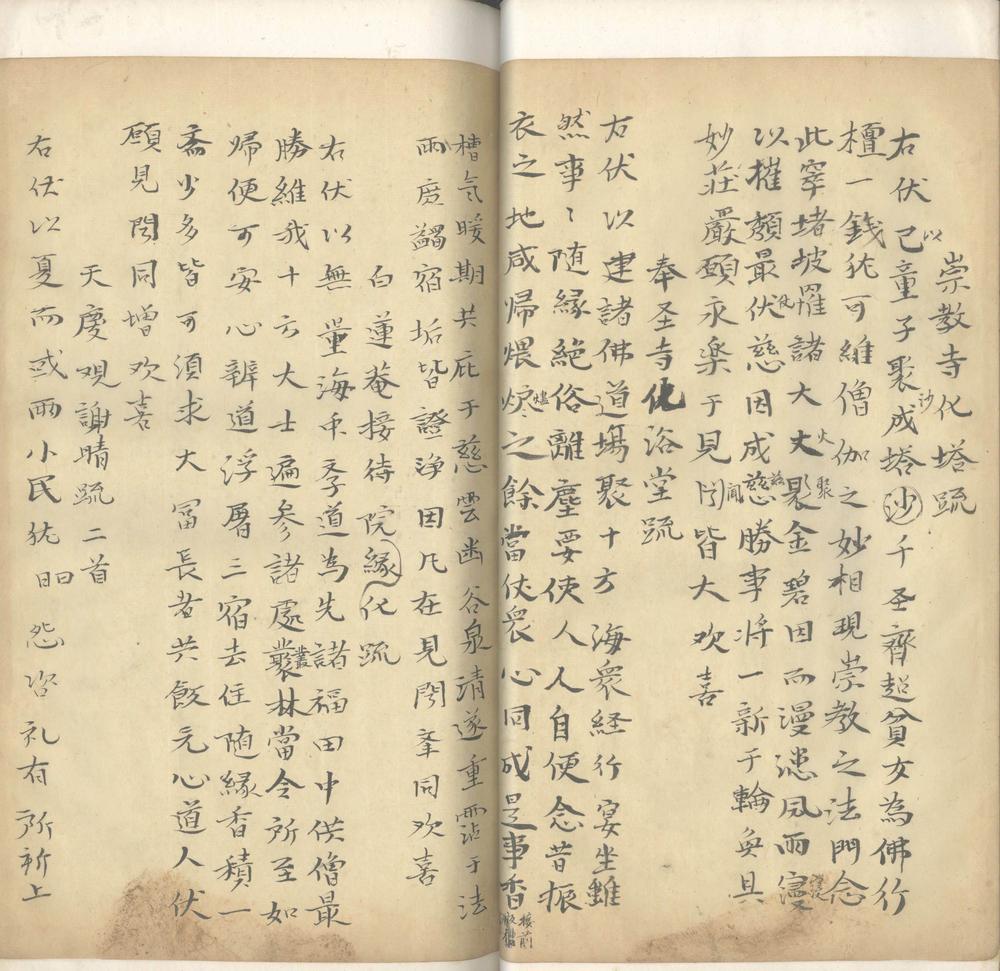 崇教寺化塔疏
右伏己以童子聚成塔沙千圣齊超貧女為佛行
檀一錢犹可維僧伽之妙相現崇教之法門念
此窣堵坡罹諸大火聚金碧因而漫漶風雨寖
以摧頹最伏慈因成慈勝事将一新于輪奂具
妙莊嚴願永楽于見闻皆大欢喜
奉圣寺化浴堂疏
右伏以建諸佛道場聚十方海衆経行宴坐雖
然事〻随緣絶俗離塵要使人人自便念昔振
衣之地咸歸煨燼之餘當伏衆心同成是事香
接前
槽氣暖期共庇于慈雲幽谷泉清遂重霑于法
雨庶蠲宿垢皆證浄因凡在見聞峯同欢喜
白蓮菴接待院緣化疏
右伏以無量海中孝道為先諸福田中供僧最
勝維我十方大士遍参諸處叢林當令所至如
歸便可安心辨道浮屠三宿去住随緣香積一
斋少多皆可須求大冨長者共飯无心道人伏
願見聞同增欢喜
天慶观謝晴疏二首
右伏以夏而或雨小民犹曰怨咨礼有所祈上